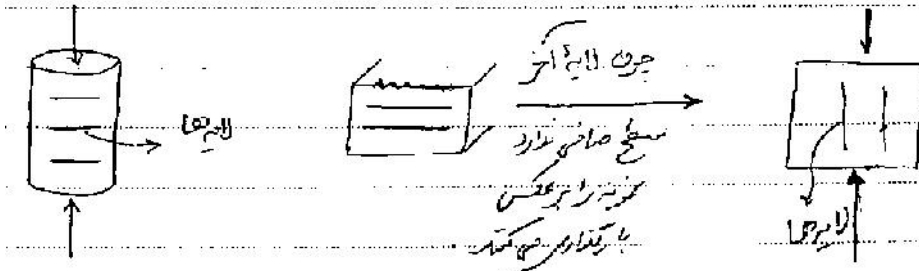 لایه ها
چون لایهٔ آخر
سطح صافی ندارد
نمونه را برعکس
بارگذاری می کنند
لایه ها